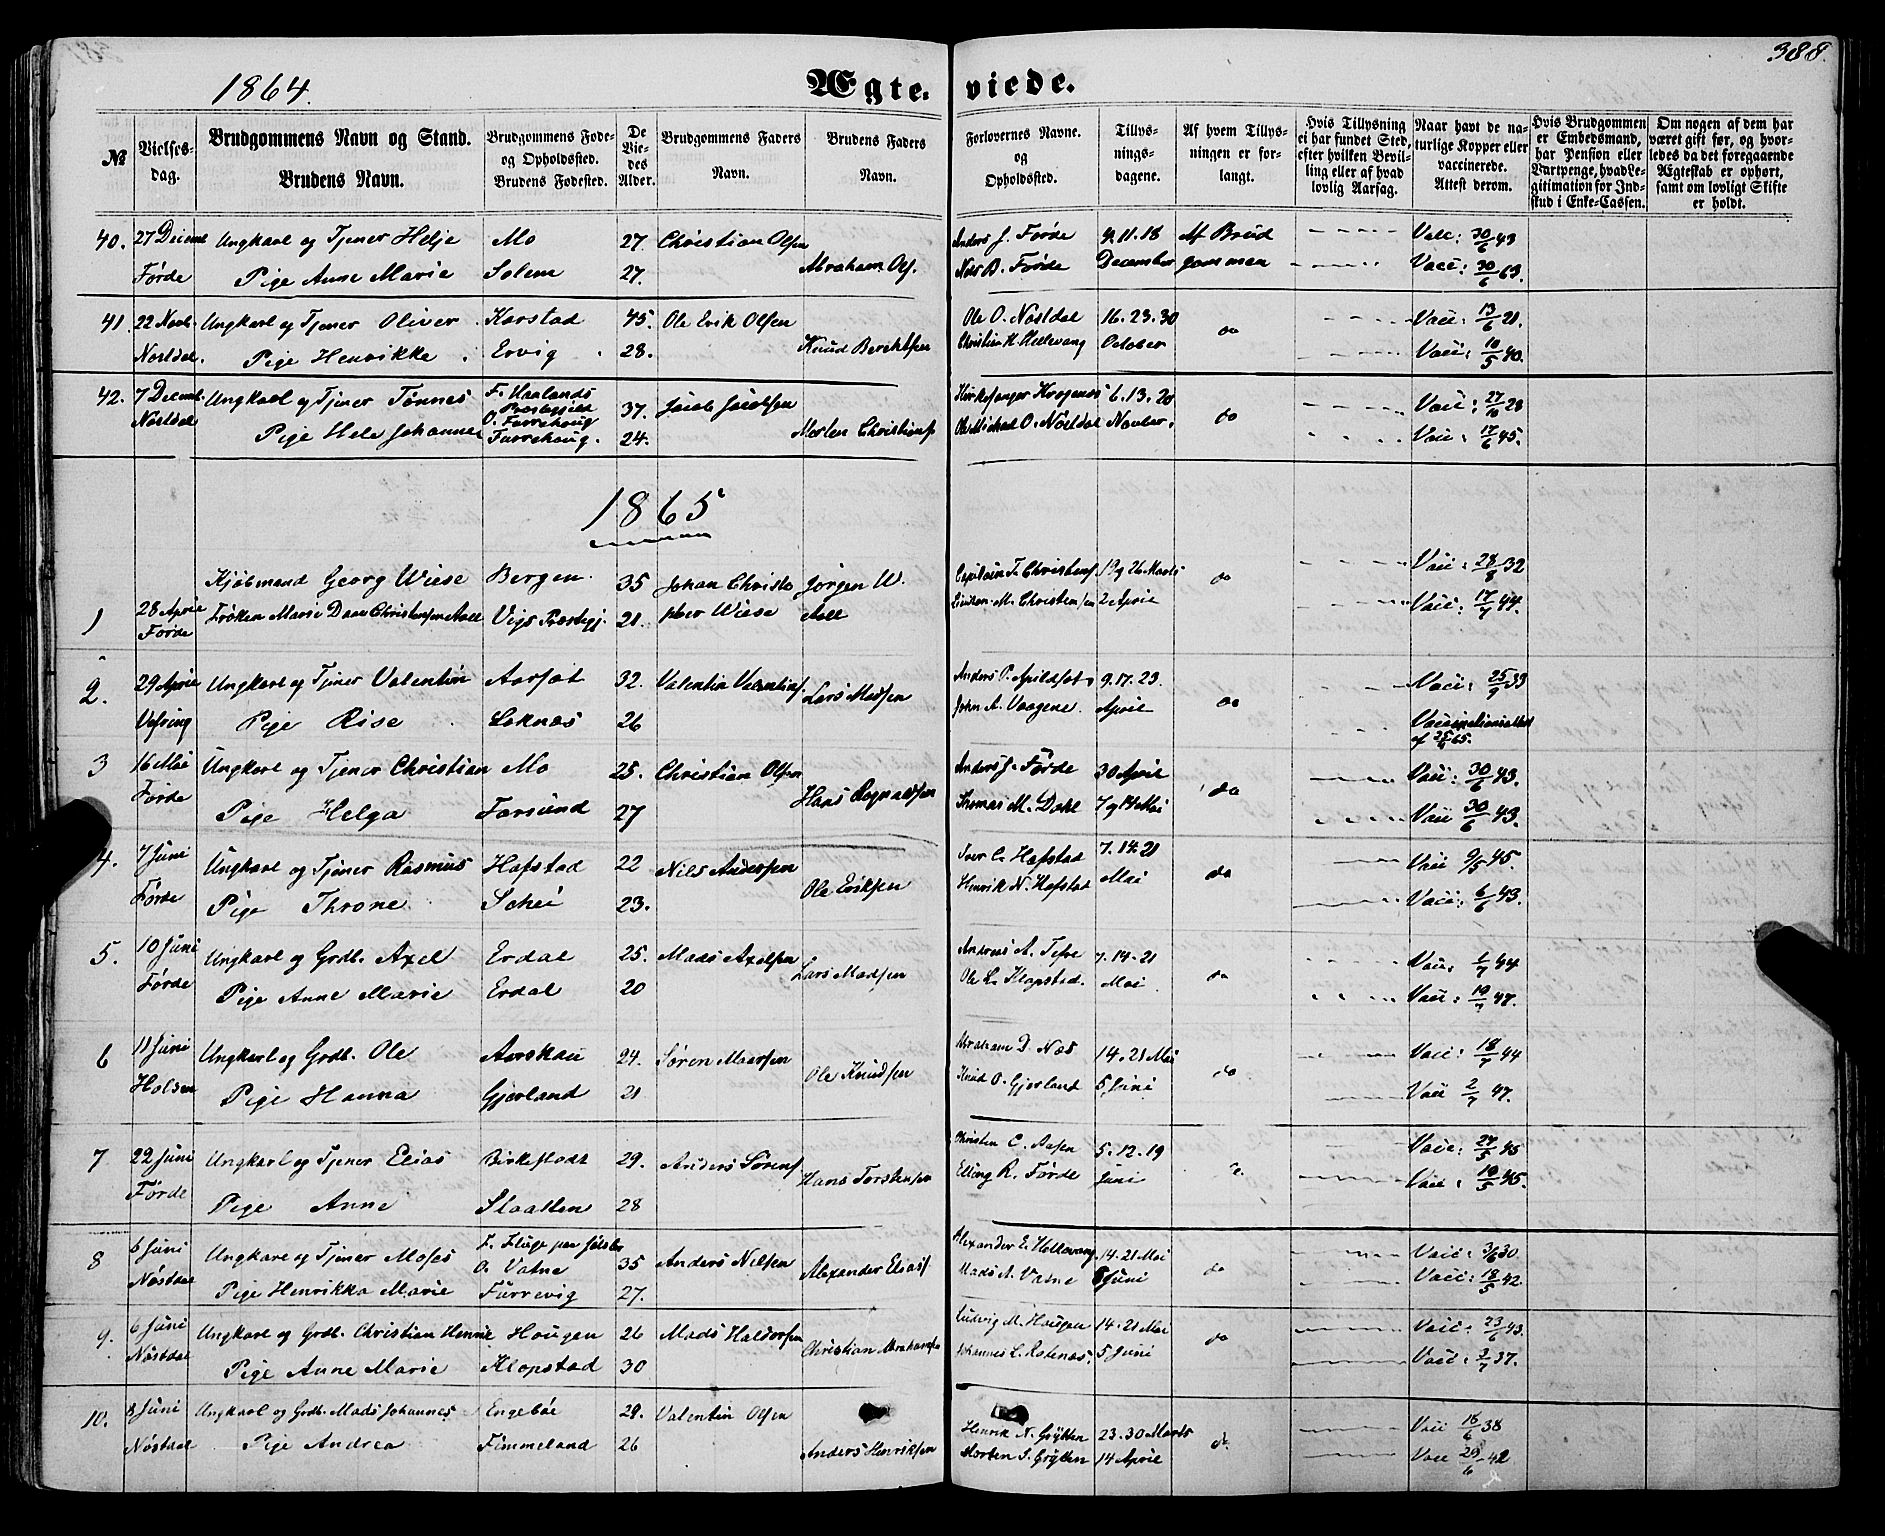 388.
1864.
Ægte. viede.
№
Vielses-dag.
Brudgommens Navn og Stand.
Brudens Navn.
Brudgommens Føde- og Opholdssted.
Brudens Fødested.
De Vie-des Alder.
Brudgommens Faders Navn.
Brudens Faders Navn.
Forlovernes Navne. og Opholdssted.
Tillys-nings-dagene.
Af hvem Tillys-ningen er for-langt.
Hvis Tillysning ei har fundet Sted, efter hvilken Bevil-ling eller af hvad lovlig Aarsag.
Naar havt de na-turlige Kopper eller vaccinerede. Attest derom.
Hvis Brudgommen er Embedsmand, har Pension eller Vartpenge, hvad Le-gitimation for Ind-skud i Enke-Cassen.
Om nogen af dem har været gift før, og hvor-ledes da det foregaaende Ægteskab er ophørt, samt om lovligt Skifte er holdt.
40. 27 Decembr Ungkarl og Tjener Helje Mo 27. Christian Olsen Anders J. Førde 4.11.18 Af Brud Vacc: 30/6 43
Førde Pige Anne Marie Solem 27. Abraham Ols. Nils B. Førde December gommen Vacc: 30/6 63.
41. 22 Novb. Ungkarl og Tjener Oliver Karstad 45. Ole Erik Olsen Ole O. Nøstdal 16. 23. 30 do Vacc: 13/6 21.
Nøstdal. Pige Henrikke Ervig 28. Knud Berentsen Christian H. Hellevang October Vacc: 10/5 40.
42. 7 Decemb. Ungkarl og Tjener Tønnes F. Haalands Præstegjeld O. Furrehoug 37. Jacob Jacobsen Kirkesanger 6. 13. 20 do Vacc: 27/10 28
Nøstdal Pige Hele Johanne Furrehoug. 24. Morten Christians. Ole Michael O. Nøstdal Novber. Vacc: 17/6 45.
1865
1 28 April Kjøbmand Georg Wiese Bergen. 35 Johan Christo Jørgen W. Capitain T. Christens. 19 og 26 Marts do Vacc: 28/8 32
Førde Frøken Marie Dane Christensen Aall Vigs Præstegj. 21. pher Wiese Aall M. Christensen 2 April Vacc: 17/7 44.
2. 29 April Ungkarl og Tjener Valentin Aarsæt 32. Valentin Valentins. Lars Madsen Anders P. 9. 17. 23. do Vacc: 25/9 33
Vefring Pige Rise Løknæs 26 John A. Vaagene. April Vaccinationsattest af 25/4 65.
3 16 Mai Ungkarl og Tjener Christian Mo 25. Christian Olsen Hans Rognaldsen Anders J. Førde 30 April do Vacc: 30/6 43.
Førde Pige Helga Farsund 27 Thomas M. Dahl 7 og 14 Mai Vacc 30/6 43.
4. 7 Juni Ungkarl og Tjener Rasmus Hafstad 22 Nils Andersen Iver C. Hafstad 7. 14. 21 do Vacc 9/5 45.
Førde Pige Throne Schei 23. Ole Eriksen Henrik N. Hafstad Mai Vacc: 6/6 43.
5. 10 Juni Ungkarl og Grdb. Axel Erdal 25. Mads Axelsen Lars Madsen Andreas A. Tefre 7. 14. 21 do Vacc: 1/7 44
Førde Pige Anne Marie Erdal 20 Ole L. Klopstad. Mai Vacc: 19/7 47.
6 11 Juni Ungkarl og Grdb. Ole Aarskau 24. Søren Maarsen Abraham D. Næs 14. 21 Mai do Vacc: 18/7 44
Holsen Pige Hanna Gjerland 21 Ole Knudsen Knud O. Gjerland 5 Juni Vacc 2/7 47.
7 22 Juni Ungkarl og Tjener Elias Birkestadt 29. Anders Sørens. Christen C. Aasen 5. 12. 19 do Vacc: 27/5 45
Førde Pige Anne Slaatten 28 Hans Torstensen Elling R. Førde Juni Vacc: 10/5 45.
8 6 Juni Ungkarl og Tjener Moses F. Fluge paa Jølster O. Vatne 35 Anders Nilsen Alexander E. Hellevang 14. 21 Mai do Vacc: 3/6 30
Nøstdal Pige Henrikka Marie Furrevig 27. Alexander Elias. Mads A. Vatne 5 Juni Vacc: 18/5 42.
9. 6 Juni Ungkarl og Grdb. Christian Henrik Hougen 26 Mads Haldorsen Ludvig M. Haugen 14. 21 Mai do Vacc: 23/6 43.
Nøstdal Pige Anne Marie Klopstad 30 Christian Abrahamsen Johannes L. Rotenæs. 5 Juni Vacc: 2/7 37.
10. 8 Juni Ungkarl og Grdb. Mads Johannes Engebøe 29. Valentin Olsen Henrik N. Grytten 23. 30 Marts do Vacc 16/6 38
Nøstdal Pige Andrea Fimmeland 26 Anders Henriksen Morten S. Grytten 14 April Vacc 29/6 42